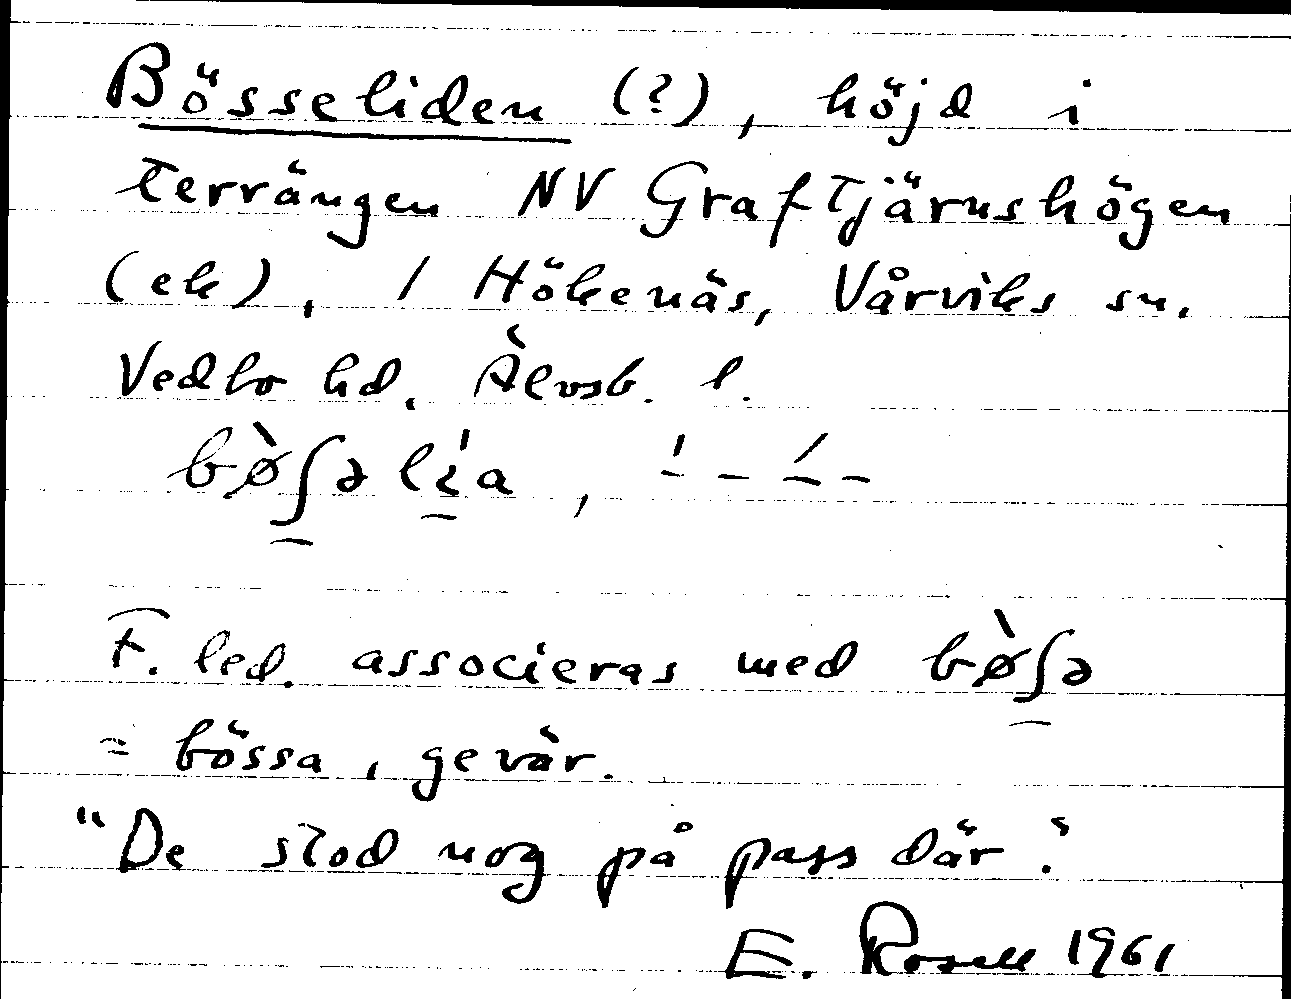 Bösseliden (?), höjd i
terrängen NV Graftjärnshögen
(ek), / Hökenäs, Vårviks sn.
Vedbo hd. Älvsb. l.
bø̀ʃə lía, ˈ- - ́- -
F. led. associeras med bø̀ʃə
= bössa, gevär.
"De stod nog på pass där."
E. Rosell 1961